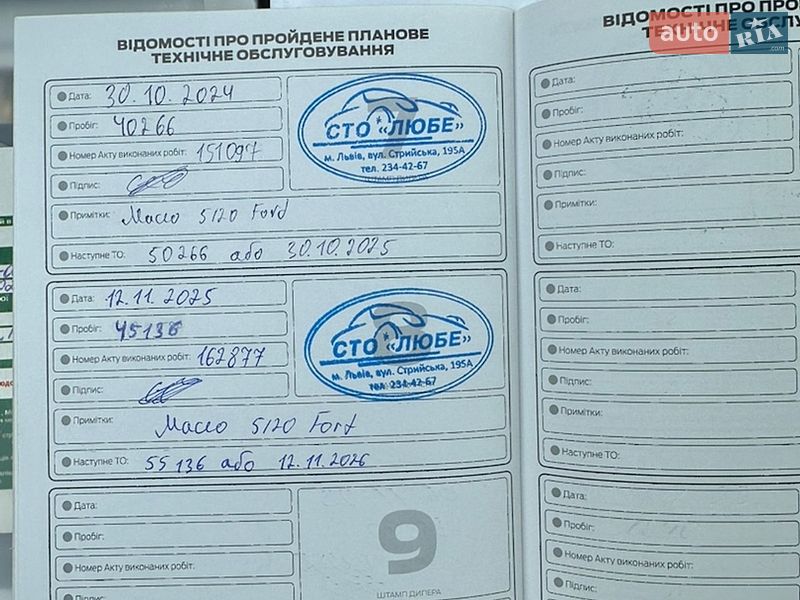 ВІДОМОСТІ ПРО ПРОЙДЕНЕ ПЛАНОВЕ
ТЕХНІЧНЕ ОБСЛУГОВУВАННЯ
Дата: 30.10.2024
Пробіг: 40266
Номер Акту виконаних робіт: 151097
Підпис:
Примітки: Масло 5/20 Ford
Наступне ТО: 50266 або 30.10.2025
СТО "ЛЮБЕ"
м. Львів, вул. Стрийська, 195А
тел. 234-42-67
ШТАМП ДИЛЕРА
Дата: 12.11.2025
Пробіг: 45136
Номер Акту виконаних робіт: 162877
Підпис:
Примітки: Масло 5/20 Ford
Наступне ТО: 55136 або 12.11.2026
8
СТО "ЛЮБЕ"
м. Львів, вул. Стрийська, 195А
тел. 234-42-67
Дата:
Пробіг:
Номер Акту виконаних робіт:
Підпис:
9
ШТАМП ДИЛЕРА
ВІДОМОСТІ ПРО ПРО
ТЕХНІЧНЕ ОБСЛУ
auto RIA .com
Дата:
Пробіг:
Номер Акту виконаних робіт:
Підпис:
Примітки:
Наступне ТО:
Дата:
Пробіг:
Номер Акту виконаних робіт:
Підпис:
Примітки:
Наступне ТО:
Дата:
Пробіг:
Номер Акту виконаних робіт:
Підпис: